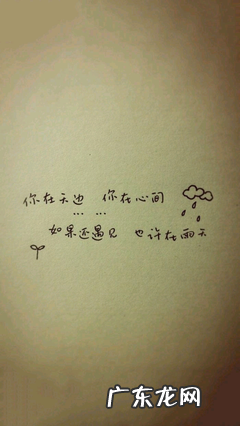 你在天边 你在心间
... ...
如果还遇见 也许在雨天
广东龙网